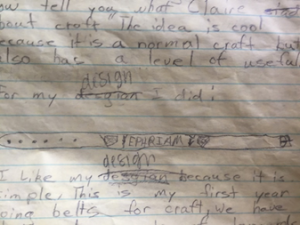 ow tell you what Claire said
about craft. The idea is cool
because it is a normal craft but
also has a level of useful
design
for my desgian I did:
EPHRIAM
design
I like my desgian because it is
simple. This is my first year
doing belts for craft, we have